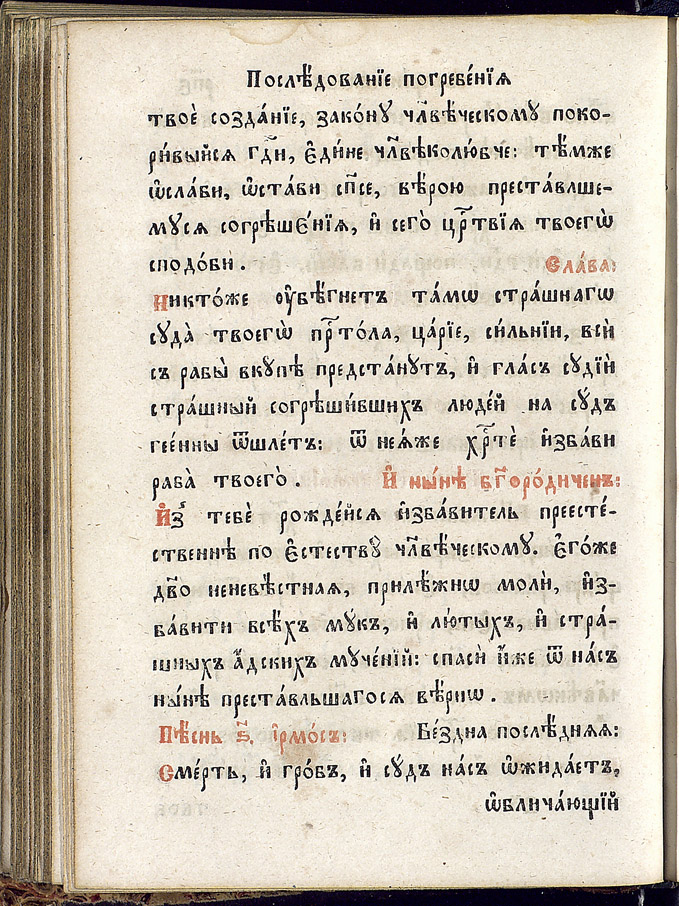 Послѣ́дованїе погребе́нїѧ
твоѐ созда́нїе, зако́нꙋ чл҃вѣ́ческомꙋ поко-
ри́выйсѧ гдⷭ҇и, є҆ди́не чл҃вѣколю́бче: тѣ́мже
ѡ҆сла́би, ѡ҆ста́ви сп҃се, вѣ́рою преста́влше-
мꙋсѧ согрѣше́нїѧ, и҆ сегѡ̀ црⷭ҇твїѧ твоегѡ̀
сподо́би. Сла́ва:
Никто́же ᲂу҆бѣ́гнетъ та́мѡ стра́шнагѡ
сꙋда̀ твоегѡ̀ прⷭ҇то́ла, ца́рїе, си́льнїи, всѝ
съ рабы̀ вкꙋ́пѣ предста́нꙋтъ, и҆ гла́съ сꙋдїѝ
стра́шный согрѣши́вшихъ люде́й на сꙋ́дъ
гее́нны ѿшле́тъ: ѿ неѧ́же хрⷭ҇тѐ и҆зба́ви
раба̀ твоего̀. И҆ ны́нѣ бг҃оро́диченъ:
И҆з̾ тебѐ рожде́йсѧ и҆зба́витель преесте́-
ственнѣ по є҆стествꙋ̀ чл҃вѣ́ческомꙋ. є҆го́же
дв҃о неневѣ́стнаѧ, прилѣ́жнѡ молѝ, и҆з-
ба́вити всѣ́хъ мꙋ́къ, и҆ лю́тыхъ, и҆ стра́-
шныхъ а҆́дскихъ мꙋче́нїй: спасѝ и҆́же ѿ на́съ
ны́нѣ преста́вльшагосѧ вѣ́рнѡ.
Пѣ́снь ѕ҃. і҆рмо́съ: Бе́здна послѣ́днѧѧ:
Сме́рть, и҆ гро́бъ, и҆ сꙋ́дъ на́съ ѡ҆жида́етъ,
ѡ҆блича́ющїй